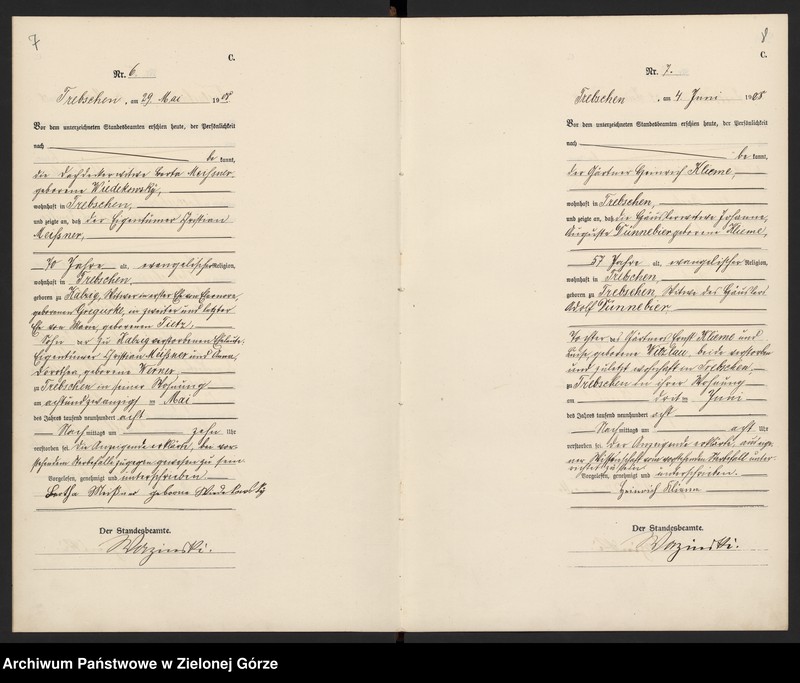 7
C.
Nr. 6.
Trebschen, am 29. Mai 1908
Vor dem unterzeichneten Standesbeamten erschien heute, der Persönlichkeit
nach
be kannt,
die Dachdeckerwitwe Berta Meißner
geborene Wiedekowsky,
wohnhaft in Trebschen,
und zeigte an, daß der Eigentümer Christian
Meißner,
70 Jahre alt, evangelischer Religion,
wohnhaft in Trebschen,
geboren zu Kalzig, Witwer in erster Ehe von Eleonore,
geborenen in zweiter und letzter
Ehe von Marie, geborenen Tietz,
Sohn der zu Kalzig verstorbenen
Eigentümer Christian Meißner und Anna,
Dorothea, geborene Werner,
zu Trebschen in seiner Wohnung
am achtundzwanzigsten Mai
des Jahres tausend neunhundert acht
Nachmittags um zehn Uhr
verstorben sei. Die Anzeigende erklärte, bei vor-
stehendem Sterbefalle zugegen gewesen zu sein.
Vorgelesen, genehmigt und unterschrieben.
Bertha Meißner geborene
Der Standesbeamte.
8
C.
Nr. 7.
Trebschen, am 4 Juni 1908
Vor dem unterzeichneten Standesbeamten erschien heute, der Persönlichkeit
nach
be kannt,
der Gärtner Heinrich Klieme,
wohnhaft in Trebschen,
und zeigte an, daß die Häuslerwitwe Johanne,
Auguste Dünnebier geborene Klieme,
57 Jahre alt, evangelischer Religion,
wohnhaft in Trebschen,
geboren zu Trebschen, Witwe des Häuslers
Adolf Dünnebier,
Tochter des Gärtners Ernst Klieme und
geborene beide verstorben
und zuletzt wohnhaft in Trebschen,
zu Trebschen in ihrer Wohnung
am dritten Juni
des Jahres tausend neunhundert acht
Nachmittags um acht Uhr
verstorben sei. Der Anzeigende erklärte, aus eige-
ner Wissenschaft von vorstehendem Sterbefall unter-
richtet zu sein.
Vorgelesen, genehmigt und unterschrieben.
Heinrich Klieme
Der Standesbeamte.
Archiwum Państwowe w Zielonej Górze